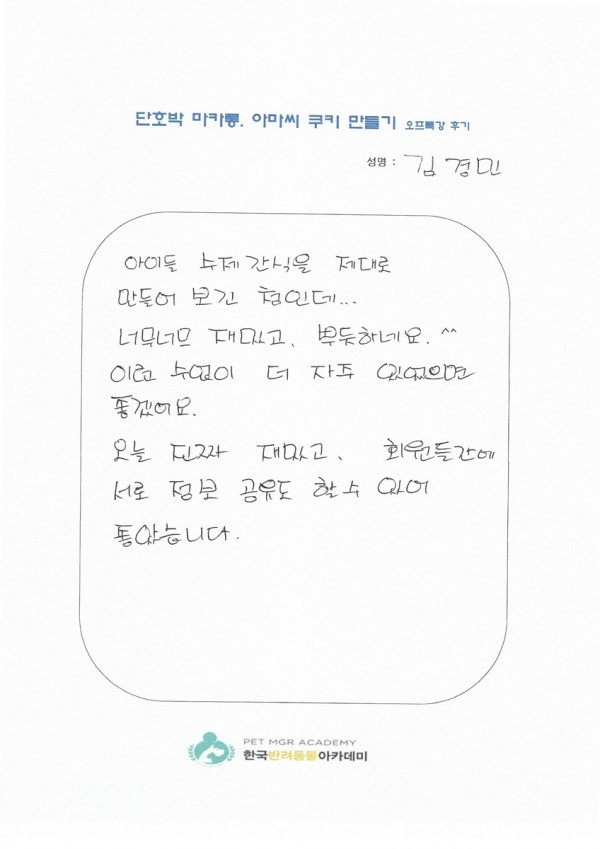 단호박 마카롱. 아마씨 쿠키 만들기 오프특강 후기
성명 : 김경민
아이들 수제간식을 제대로
만들어 보긴 첨인데...
너무너무 재밌고, 뿌듯하네요. ^^
이런 수업이 더 자주 있었으면
좋겠어요.
오늘 진짜 재밌고, 회원들간에
서로 정보 공유도 할수 있어
좋았습니다.
PET MGR ACADEMY
한국반려동물아카데미